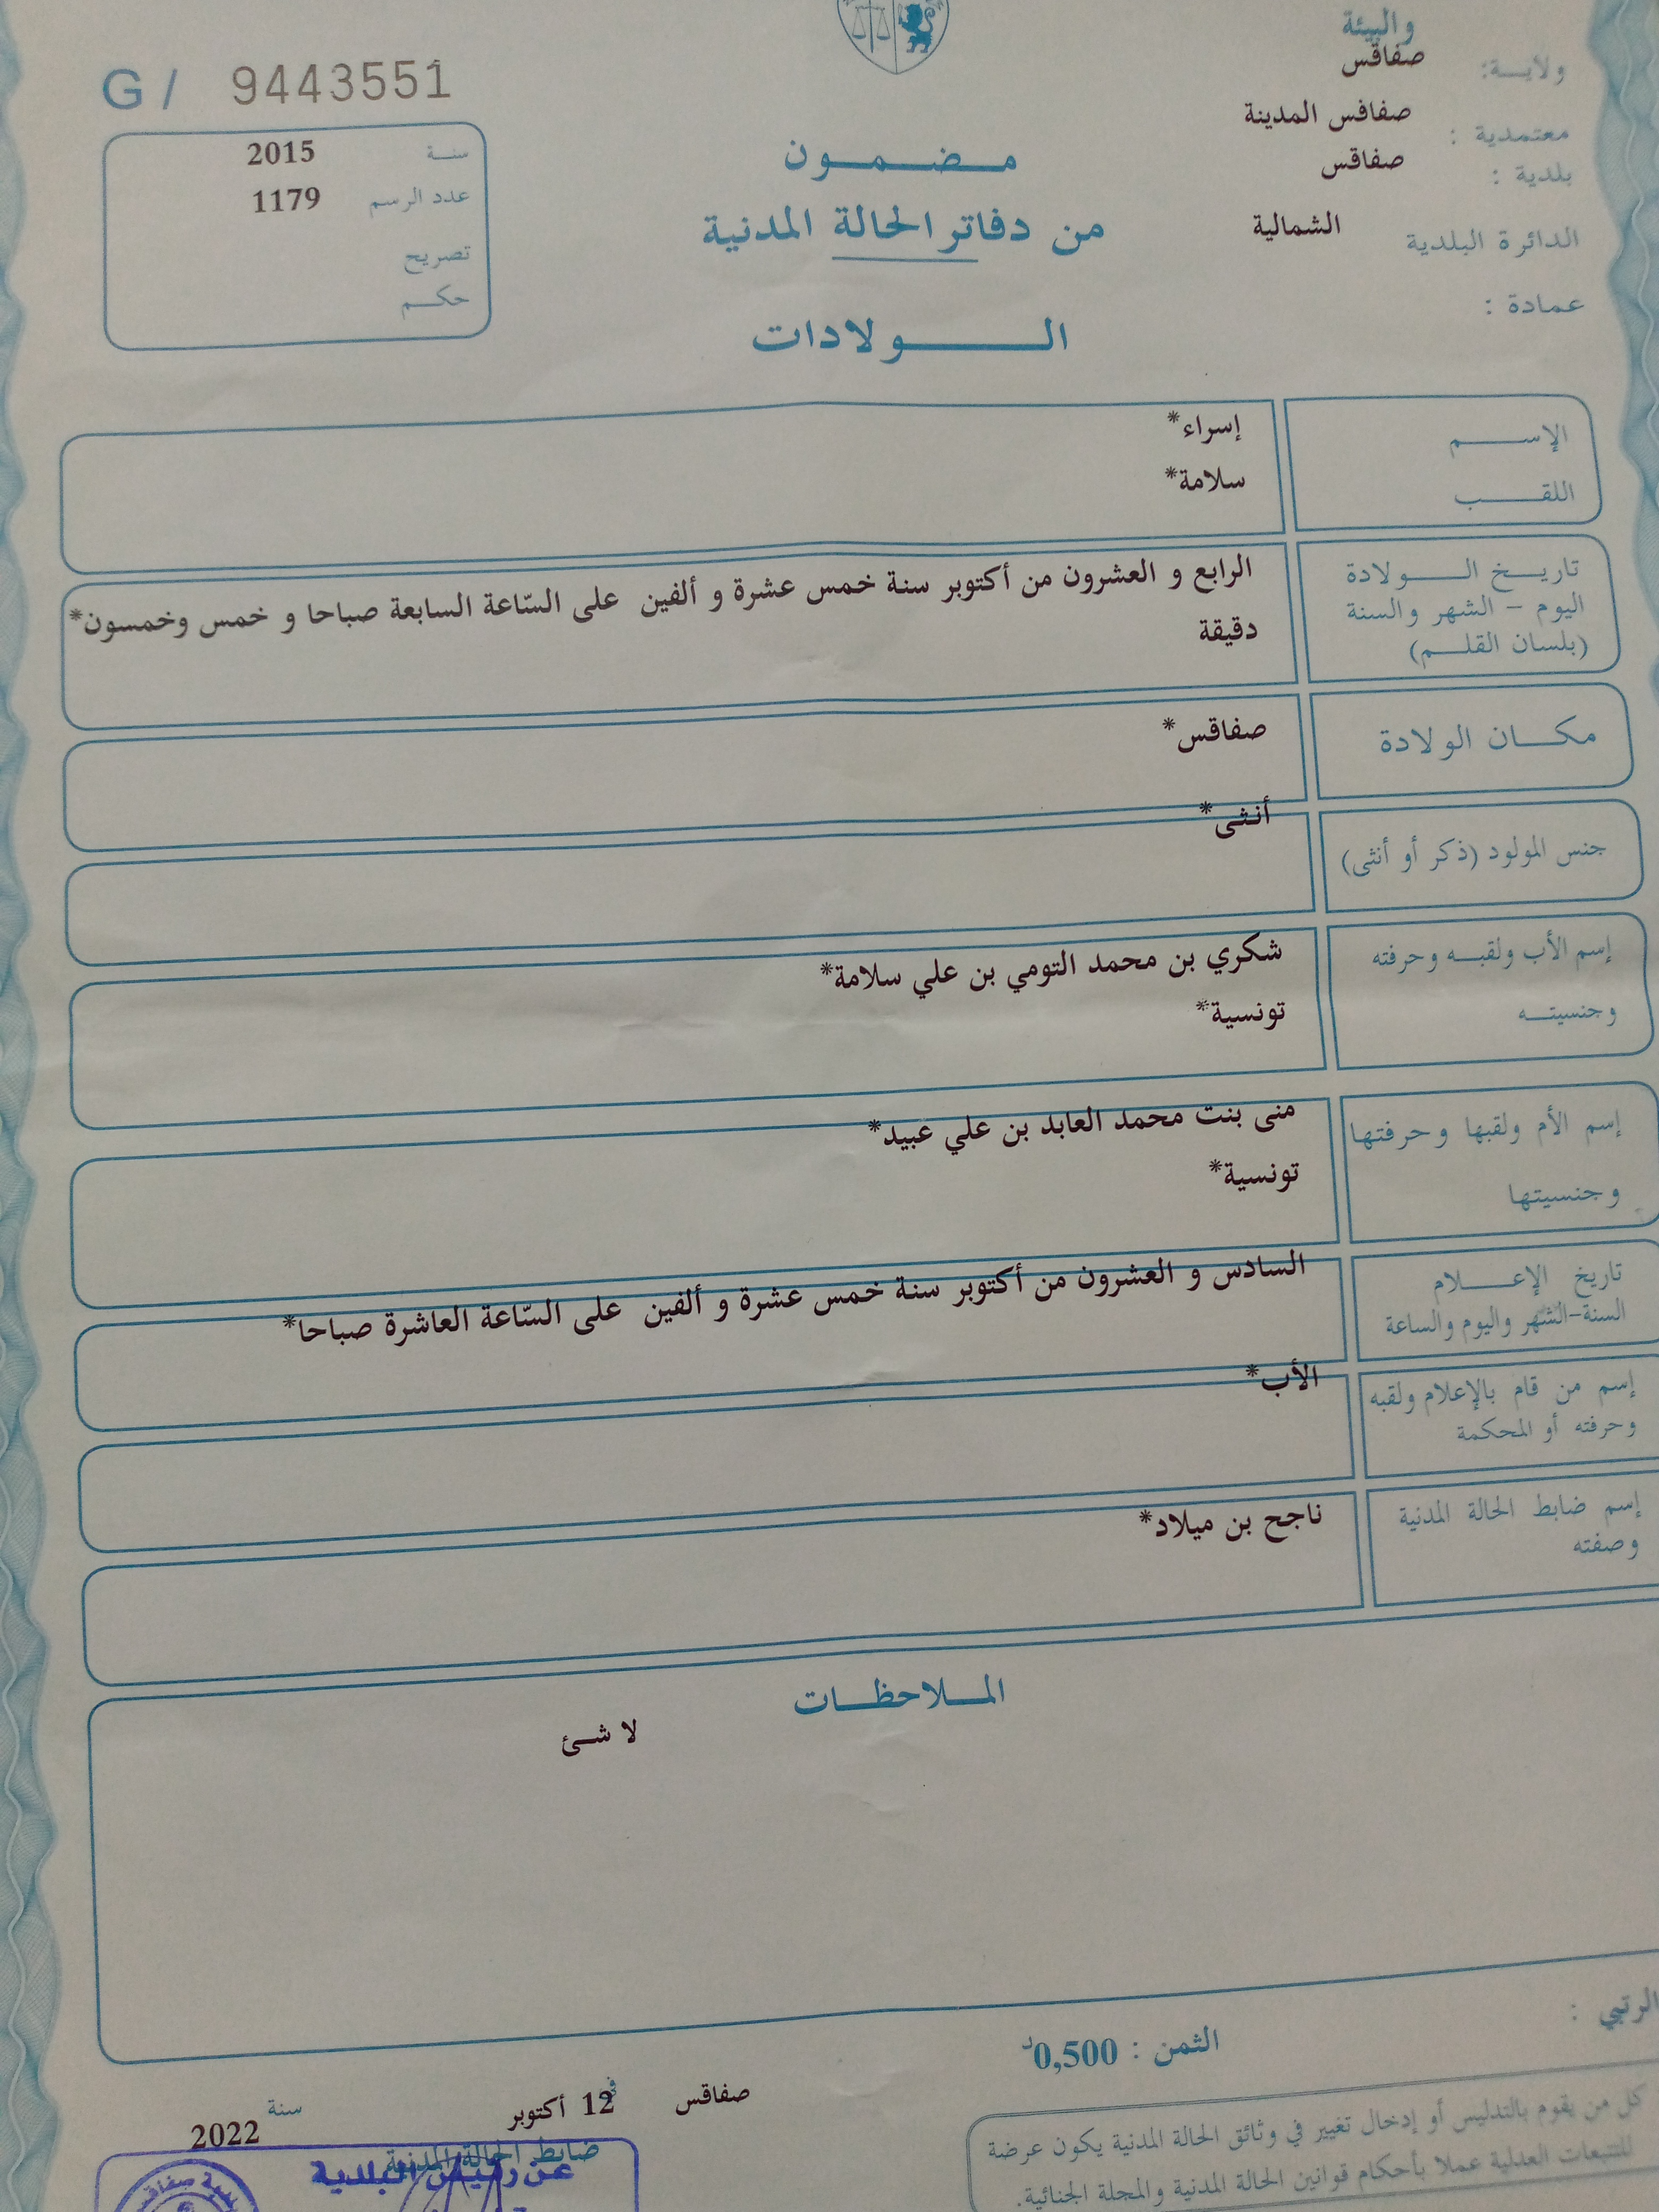 والبيئة
ولايـــة: صفاقس
معتمدية : صفافس المدينة
بلدية : صفاقس
الدائرة البلدية الشمالية
عمادة :
مـضـمـون
من دفاتر الحالة المدنية
الـولادات
G / 9443551
سنـة 2015
عدد الرسم 1179
تصريح
حكـم
الإســـم إسراء*
اللقـــب سلامة*
تاريـخ الـولادة الرابع و العشرون من أكتوبر سنة خمس عشرة و ألفين على السّاعة السابعة صباحا و خمس وخمسون*
اليوم – الشهر والسنة دقيقة
(بلسان القلـم)
مكـان الولادة صفاقس*
جنس المولود (ذكر أو أنثى) أنثى*
إسم الأب ولقبـه وحرفته شكري بن محمد التومي بن علي سلامة*
وجنسيتـه تونسية*
إسم الأم ولقبها وحرفتها منى بنت محمد العابد بن علي عبيد*
وجنسيتها تونسية*
تاريخ الإعـــلام السادس و العشرون من أكتوبر سنة خمس عشرة و ألفين على السّاعة العاشرة صباحا*
السنة-الشهر واليوم والساعة
إسم من قام بالإعلام ولقبه الأب*
وحرفته أو المحكمة
إسم ضابط الحالة المدنية ناجح بن ميلاد*
وصفته
المـلاحظـات
لا شئ
الرتبي :
الثمن : 0,500د
صفاقس في 12 أكتوبر سنة 2022
ضابط الحالة المدنية
عن رئيس البلدية
كل من يقوم بالتدليس أو إدخال تغيير في وثائق الحالة المدنية يكون عرضة
للتتبعات العدلية عملا بأحكام قوانين الحالة المدنية والمجلة الجنائية.